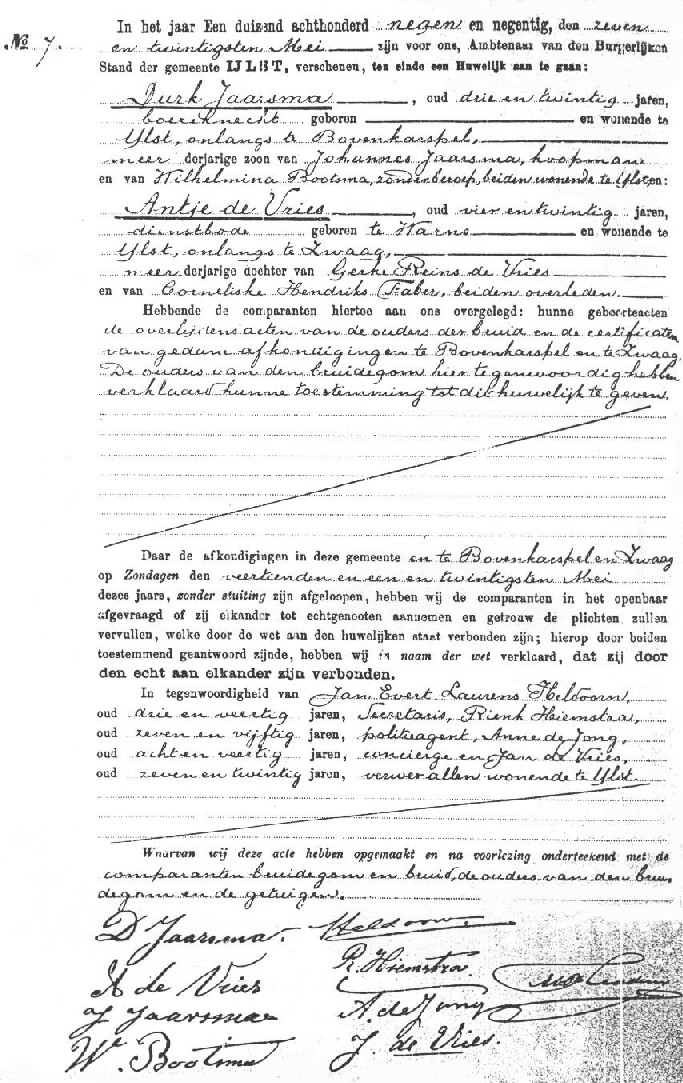 No 7.
In het jaar Een duizend achthonderd negen en negentig, den zeven
en twintigsten Mei zijn voor ons, Ambtenaar van den Burgerlijken
Stand der gemeente IJLST, verschenen, ten einde een Huwelijk aan te gaan:
Durk Jaarsma, oud drie en twintig jaren,
boereknecht geboren en wonende te
Ylst, onlangs te Bovenkarspel,
meerderjarige zoon van Johannes Jaarsma, koopman
en van Wilhelmina Bootsma, zonder beroep, beiden wonende te Ylst, en:
Antje de Vries, oud vier en twintig jaren,
dienstbode geboren te Warns en wonende te
Ylst, onlangs te Zwaag,
meerderjarige dochter van Gerke Reins de Vries
en van Corneliske Hendriks Faber, beiden overleden.
Hebbende de comparanten hiertoe aan ons overgelegd: hunne geboorteacten
de overlijdensacten van de ouders der bruid en de certificaten
van gedane afkondigingen te Bovenkarspel en te Zwaag.
De ouders van den bruidegom hier tegenwoordig hebben
verklaard hunne toestemming tot dit huwelijk te geven.
Daar de afkondigingen in deze gemeente en te Bovenkarspel en Zwaag
op Zondagen den veertienden en een en twintigsten Mei
dezes jaars, zonder stuiting zijn afgeloopen, hebben wij de comparanten in het openbaar
afgevraagd of zij elkander tot echtgenooten aannemen en getrouw de plichten zullen
vervullen, welke door de wet aan den huwelijken staat verbonden zijn; hierop door beiden
toestemmend geantwoord zijnde, hebben wij in naam der wet verklaard, dat zij door
den echt aan elkander zijn verbonden.
In tegenwoordigheid van Jan Evert Laurens Heldoorn,
oud drie en veertig jaren, Secretaris, Rienk Hiemstra,
oud zeven en vijftig jaren, politieagent, Anne de Jong,
oud acht en veertig jaren, concierge en Jan de Vries,
oud zeven en twintig jaren, verwer allen wonende te Ylst.
Waarvan wij deze acte hebben opgemaakt en na voorlezing onderteekend met de
comparanten bruidegom en bruid, de ouders van den brui
degom en de getuigen.
D Jaarsma. Heldoorn
A de Vries R. Hiemstra
J Jaarsma A. de Jong
W. Bootsma J. de Vries.